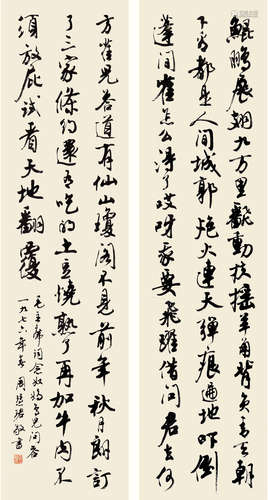 鯤鵬展翅九万里飜動扶摇羊角背负青天朝
下看都是人间城郭炮火連天彈痕遍地吓倒
蓬间雀怎么得了哎呀我要飛躍借问君去何
方雀兒答道有仙山瓊阁不見前年秋月朗訂
了三家條约還有吃的土豆燒熟了再加牛肉不
須放屁試看天地翻覆
毛主席词念奴嬌鸟兒问答
一九七六年春 周慧珺敬书